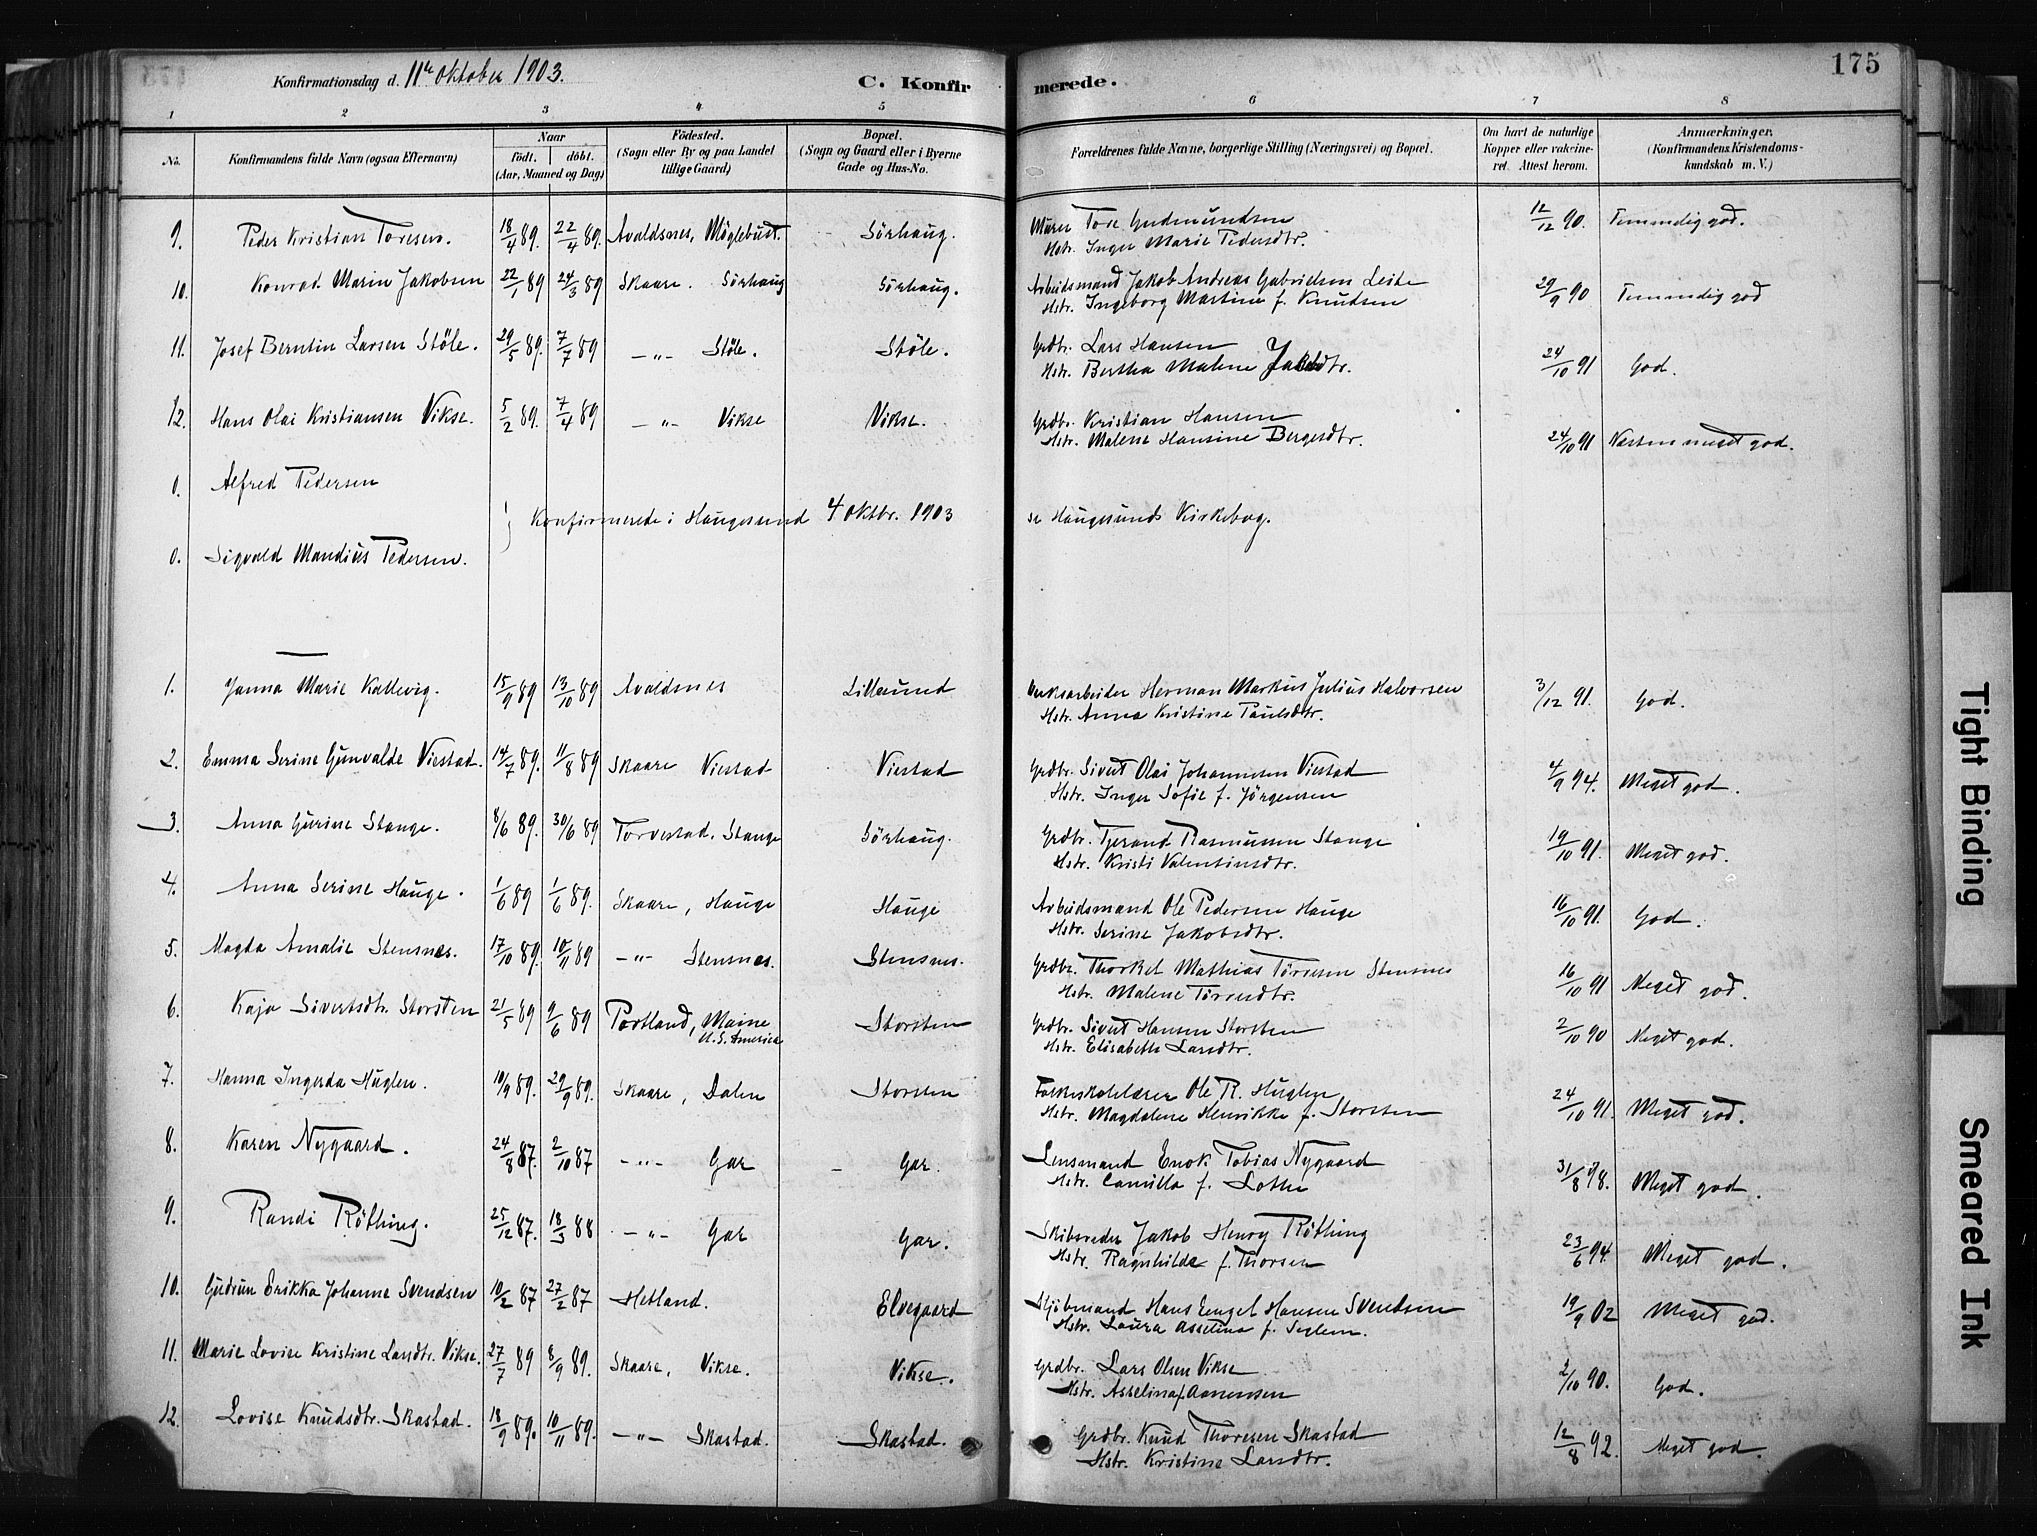 Konfirmationsdag d. 11te Oktober 1903. C. Konfirmerede. 175
1 2 3 4 5 6 7 8
No. Konfirmandens fulde Navn (ogsaa Efternavn) Naar födt. döbt. (Aar, Maaned og Dag) Födested. (Sogn eller By og paa Landet tillige Gaard) Bopæl. (Sogn og Gaard eller i Byerne Gade og Hus-No. Forældrenes fulde Navne, borgerlige Stilling (Næringsvei) og Bopæl. Om havt de naturlige Kopper eller vakcineret. Attest herom. Anmærkninger. (Konfirmandens Kristendomskundskab m. V.)
9. Peder Kristian Toresen. 18/4 89. 22/4 89. Avaldsnes, Möglebust. Sörhaug. Murer Tore Gudmundsen 12/12 90. Temmelig god.
Hstr. Inger Marie Pedersdtr.
10. Konrad Marin Jakobsen 22/1 89 24/3 89 Skaare. Sörhaug Sörhaug. Arbeidsmand Jakob Andreas Gabrielsen Leite 29/9 90 Temmelig god
Hstr. Ingeborg Martine f. Knudsen
11. Josef Berntin Larsen Stöle. 29/5 89. 7/7 89 -"- Stöle. Stöle. Grdbr. Lars Hansen 24/10 91 God.
Hstr. Bertha Malene
12. Hans Olai Kristiansen Vikse. 5/2 89. 7/4 89 -"- Vikse Vikse. Grdbr. Kristian Hansen
Hstr. Malene Hansine Bergesdtr. 24/10 91 Næsten meget god.
0. Alfred Pedersen
Konfirmerede i Haugesund 4 Oktbr. 1903 se Haugesunds Kirkebog.
0. Sigvald Mandius Pedersen.
1. Janna Marie Kallevig. 15/9 89 13/10 89 Avaldsnes Lillesund Murksarbeider Herman Markus Julius Halvorsen 3/12 91. God.
Hstr. Anna Kristine Paulsdtr.
2. Emma Serine Gunvalde Viestad. 14/7 89. 11/8 89 Skaare Viestad Viestad Grdbr. Sivert Olai Johannesen Viestad 4/9 94. Meget god.
Hstr. Inger Sofie f. Jörgensen
3. Anna Gurine Stange. 8/6 89. 30/6 89 Torvestad. Stange Sörhaug. Grdbr. Tjerand Rasmussen Stange 19/10 91. Meget god.
Hstr. Kristi Valentinsdtr.
4. Anna Serine Hauge. 1/6 89 1/6 89. Skaare, Hauge Hauge Arbeidsmand Ole Pedersen Hauge 16/10 91. God.
Hstr. Serine Jakobsdtr.
5. Magda Amalie Stensnes. 17/10 89. 10/11 89 -"- Stensnes. Stensnes. Grdbr. Thorkel Mathias Törresen Stensnes 16/10 91 Meget god.
Hstr. Malene Törresdtr.
6. Kaja Sivertsdtr. Storsten 21/5 89 9/6 89 Portland, Maine U.S. America Storsten Grdbr. Sivert Hansen Storsten 2/10 90 Meget god.
Hstr. Elisabeth Larsdtr.
7. Hanna Ingerda Huglen. 10/9 89. 29/9 89. Skaare, Dalen Storsten Folkeskolelærer Ole R. Huglen 24/10 91. Meget god.
Hstr. Magdalene Henrikke f. Storsten
8. Karen Nygaard. 24/8 87. 2/10 87 -"- Gar - Gar. Lensmand Enok Tobias Nygaard 31/8 98. Meget god.
Hstr. Camilla f. Lothe
9. Randi Röthing. 25/12 87. 18/3 88 -"- Gar Gar. Skibsreder Jakob Henry Röthing 23/6 94. Meget god.
Hstr. Ragnhilde f. Thorsen
10. Gudrun Erikka Johanne Svendsen 10/2 87 27/2 87 Hetland. Elvegaard Kjöbmand Hans Engel Hansen Svendsen 19/9 02 Meget god.
Hstr. Laura Asseline f. Seglem.
11. Marie Lovise Kristine Larsdtr. Vikse. 27/7 89 8/9 89. Skaare, Vikse. Vikse. Grdbr. Lars Olsen Vikse 2/10 90. God.
Hstr. Asselina f. Aanensen
12. Lovise Knudsdtr. Skastad. 18/9 89. 10/11 89. -"- Skastad. Skastad. Grdbr. Knud Thoresen Skastad 12/8 92. Meget god.
Hstr. Kristine Larsdtr.
Tight Binding
Smeared Ink